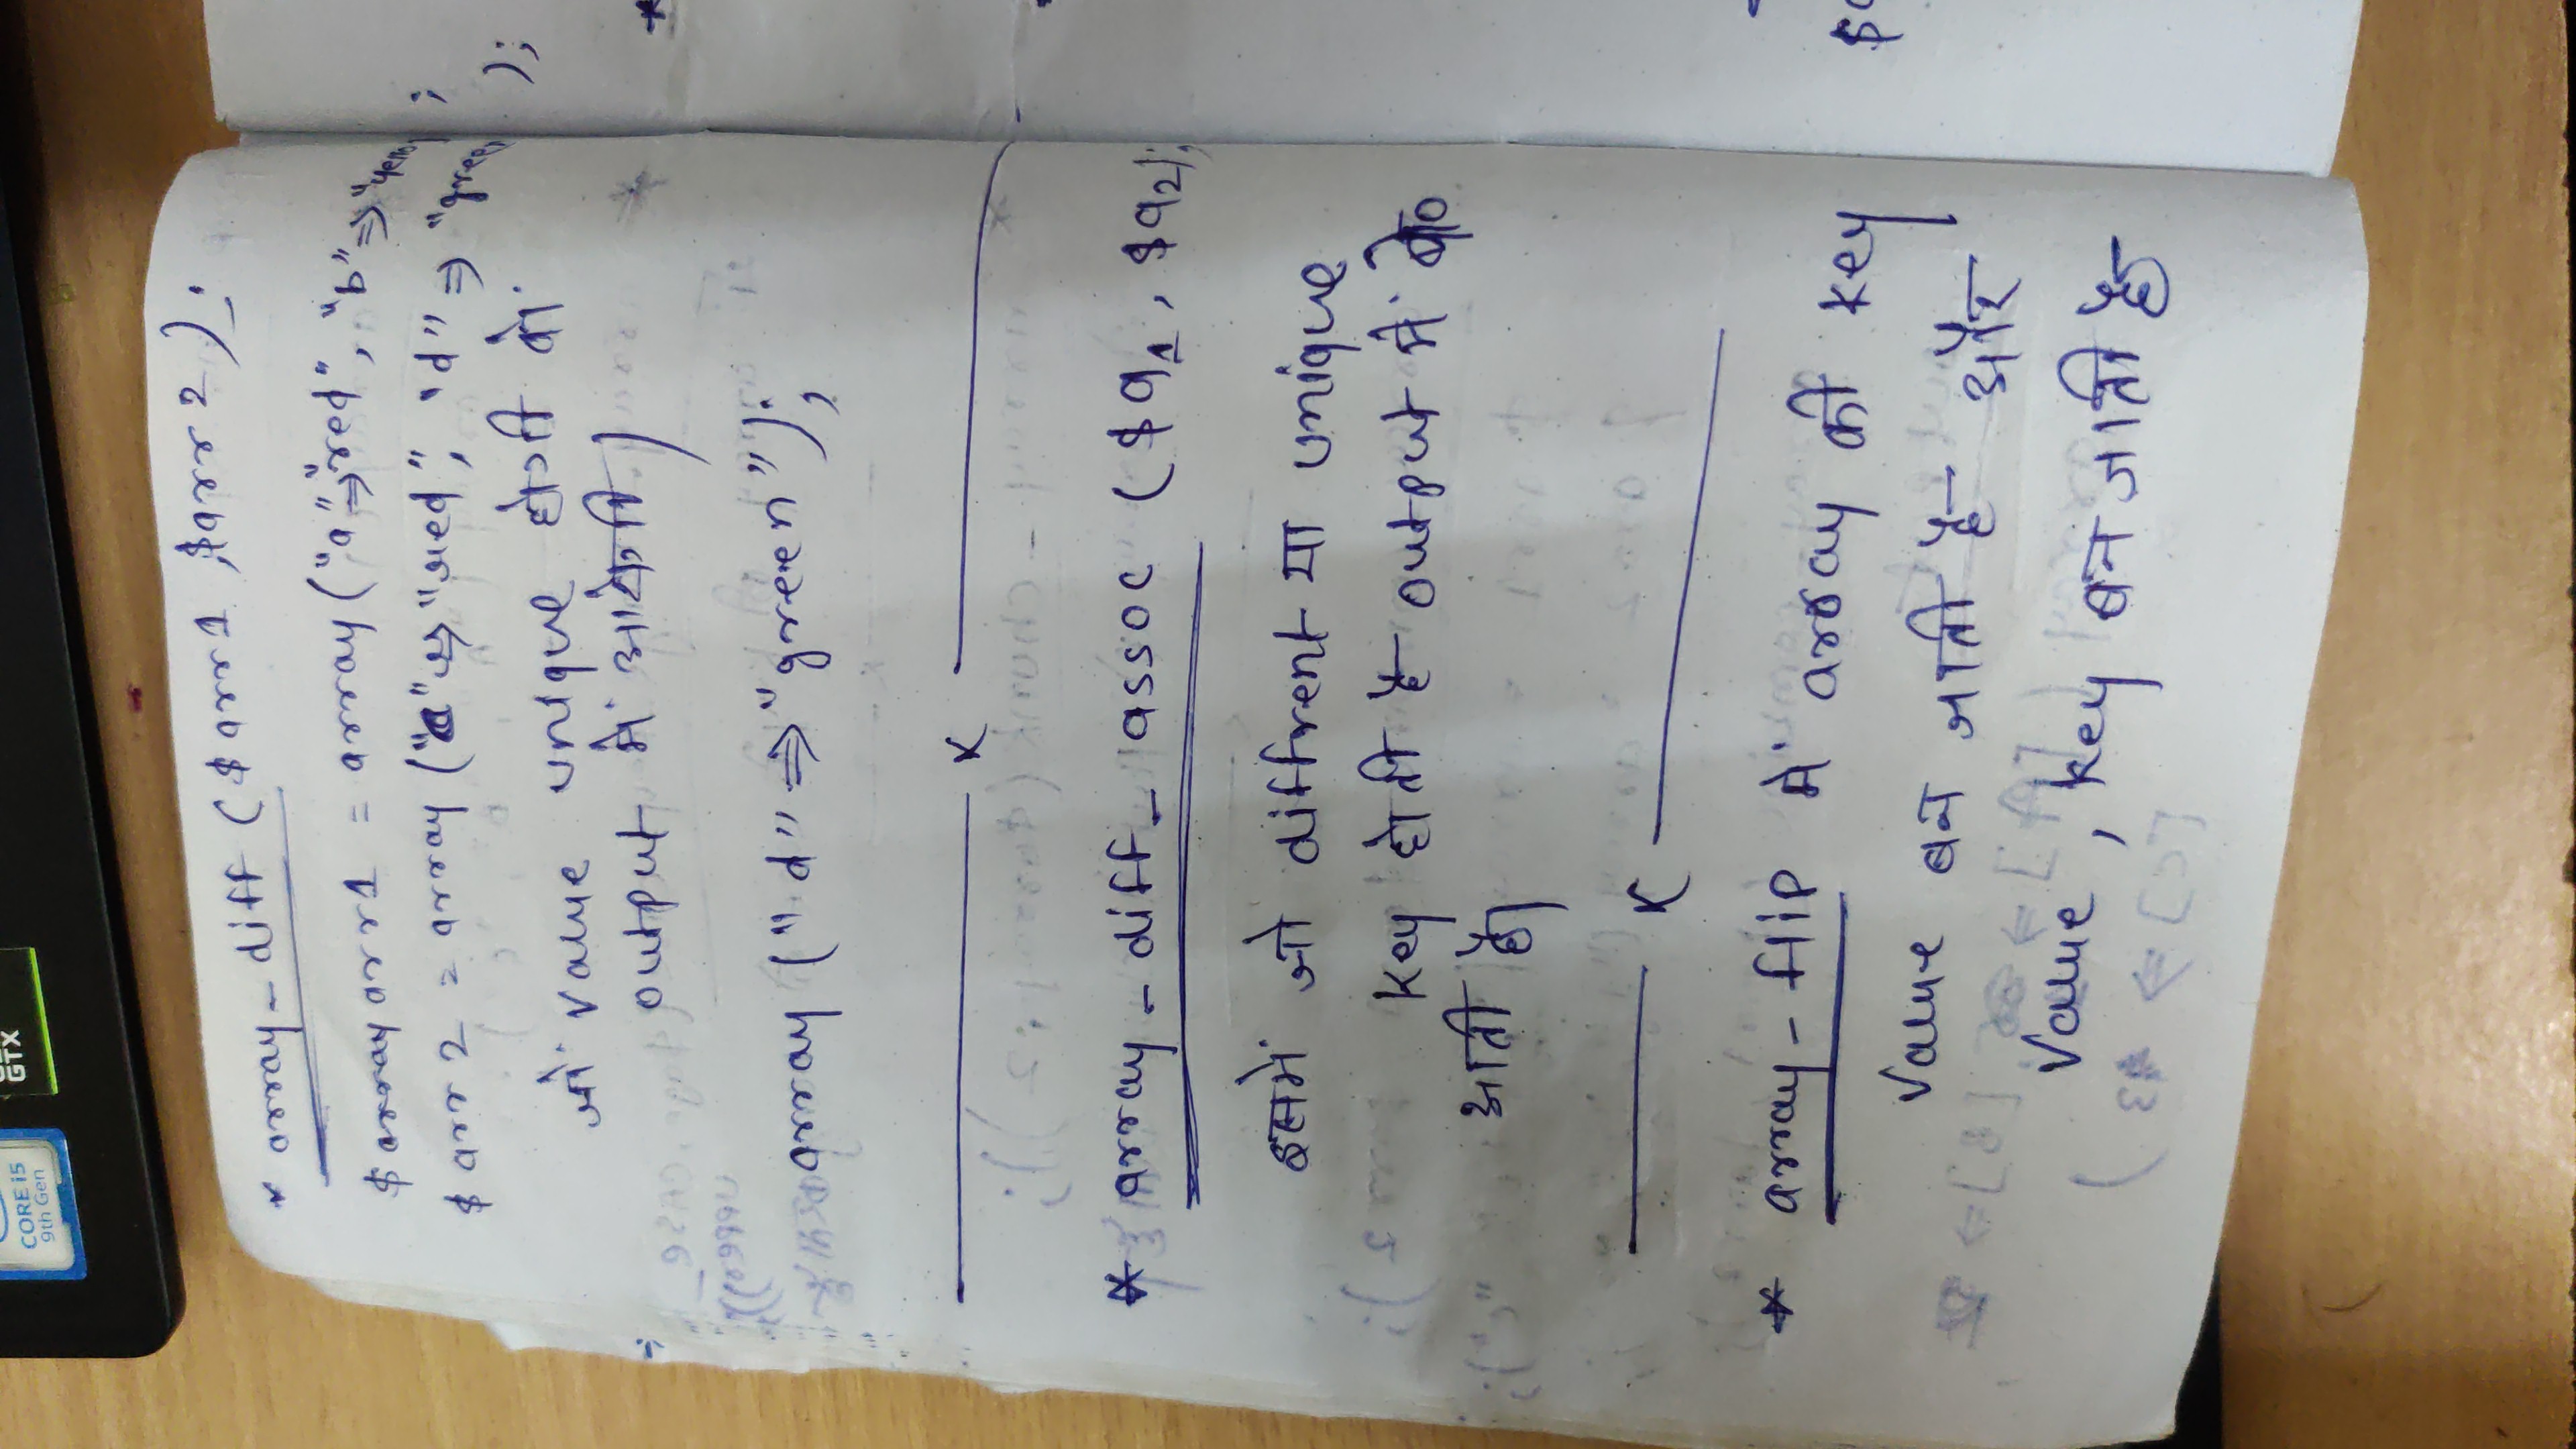 CORE i5
9th Gen
GTX
* array_diff ($arr1, $arr2);
$ arr1 = array ("a"=>"red", "b"=>
$ arr2 = array ("c"=>"red", "d"=>"green");
जो value unique होगी वो
output में आयेगी।
array ("d" => "green");
x
* array_diff_assoc ($a1, $a2);
इसमें जो diffrent या unique
key होती है output में वो
आती है।
x
* array-flip में array की key
value बन जाती है और
value, key बन जाती है